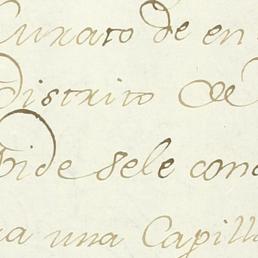 Curato de en
Distrito de
Pide sele conc
una Capill